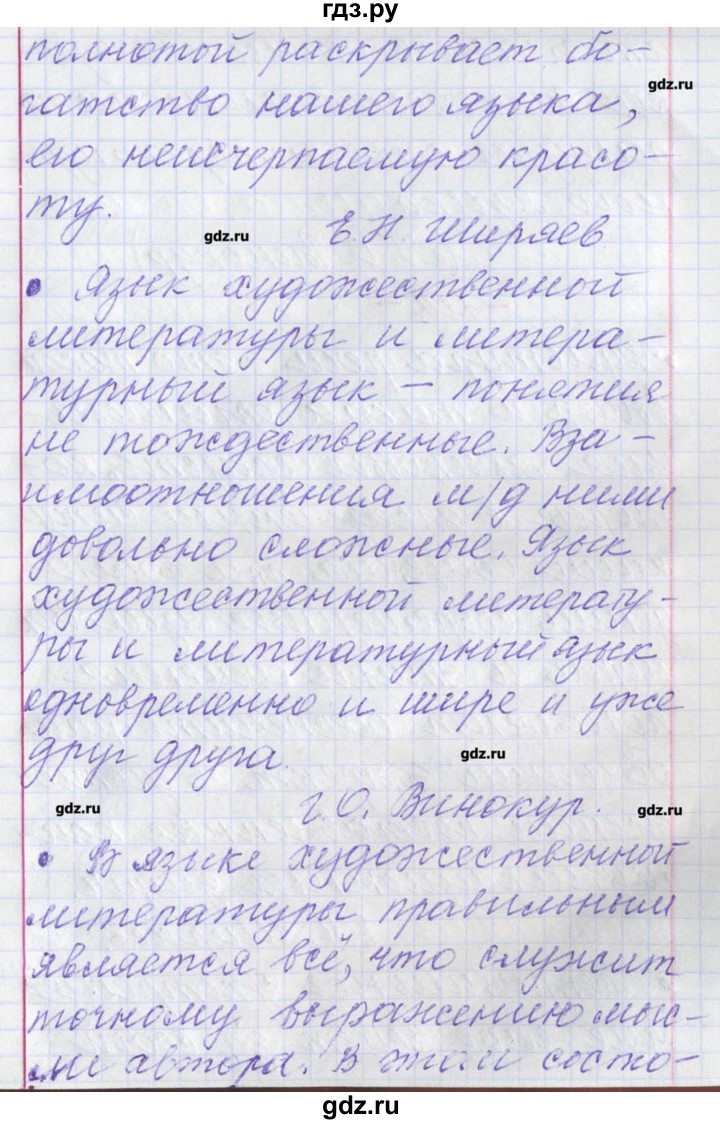 гдз.ру
полнотой раскрывает бо-
gdz.ru
гатство нашего языка,
его неисчерпаемую красо-
ту.
gdz.ru
Е.Н. Ширяев
• Язык художественной
литературы и литера-
турный язык – понятия
не тождественные. Вза-
имоотношения м/д ними
довольно сложные. Язык
художественной литерату-
ры и литературный язык
одновременно и шире и уже
друг друга.
gdz.ru
gdz.ru
Г.О. Винокур.
gdz.ru
• В языке художественной
литературы правильным
является всё, что служит
точному выражению мыс-
ли автора. В этом состо-
gdz.ru